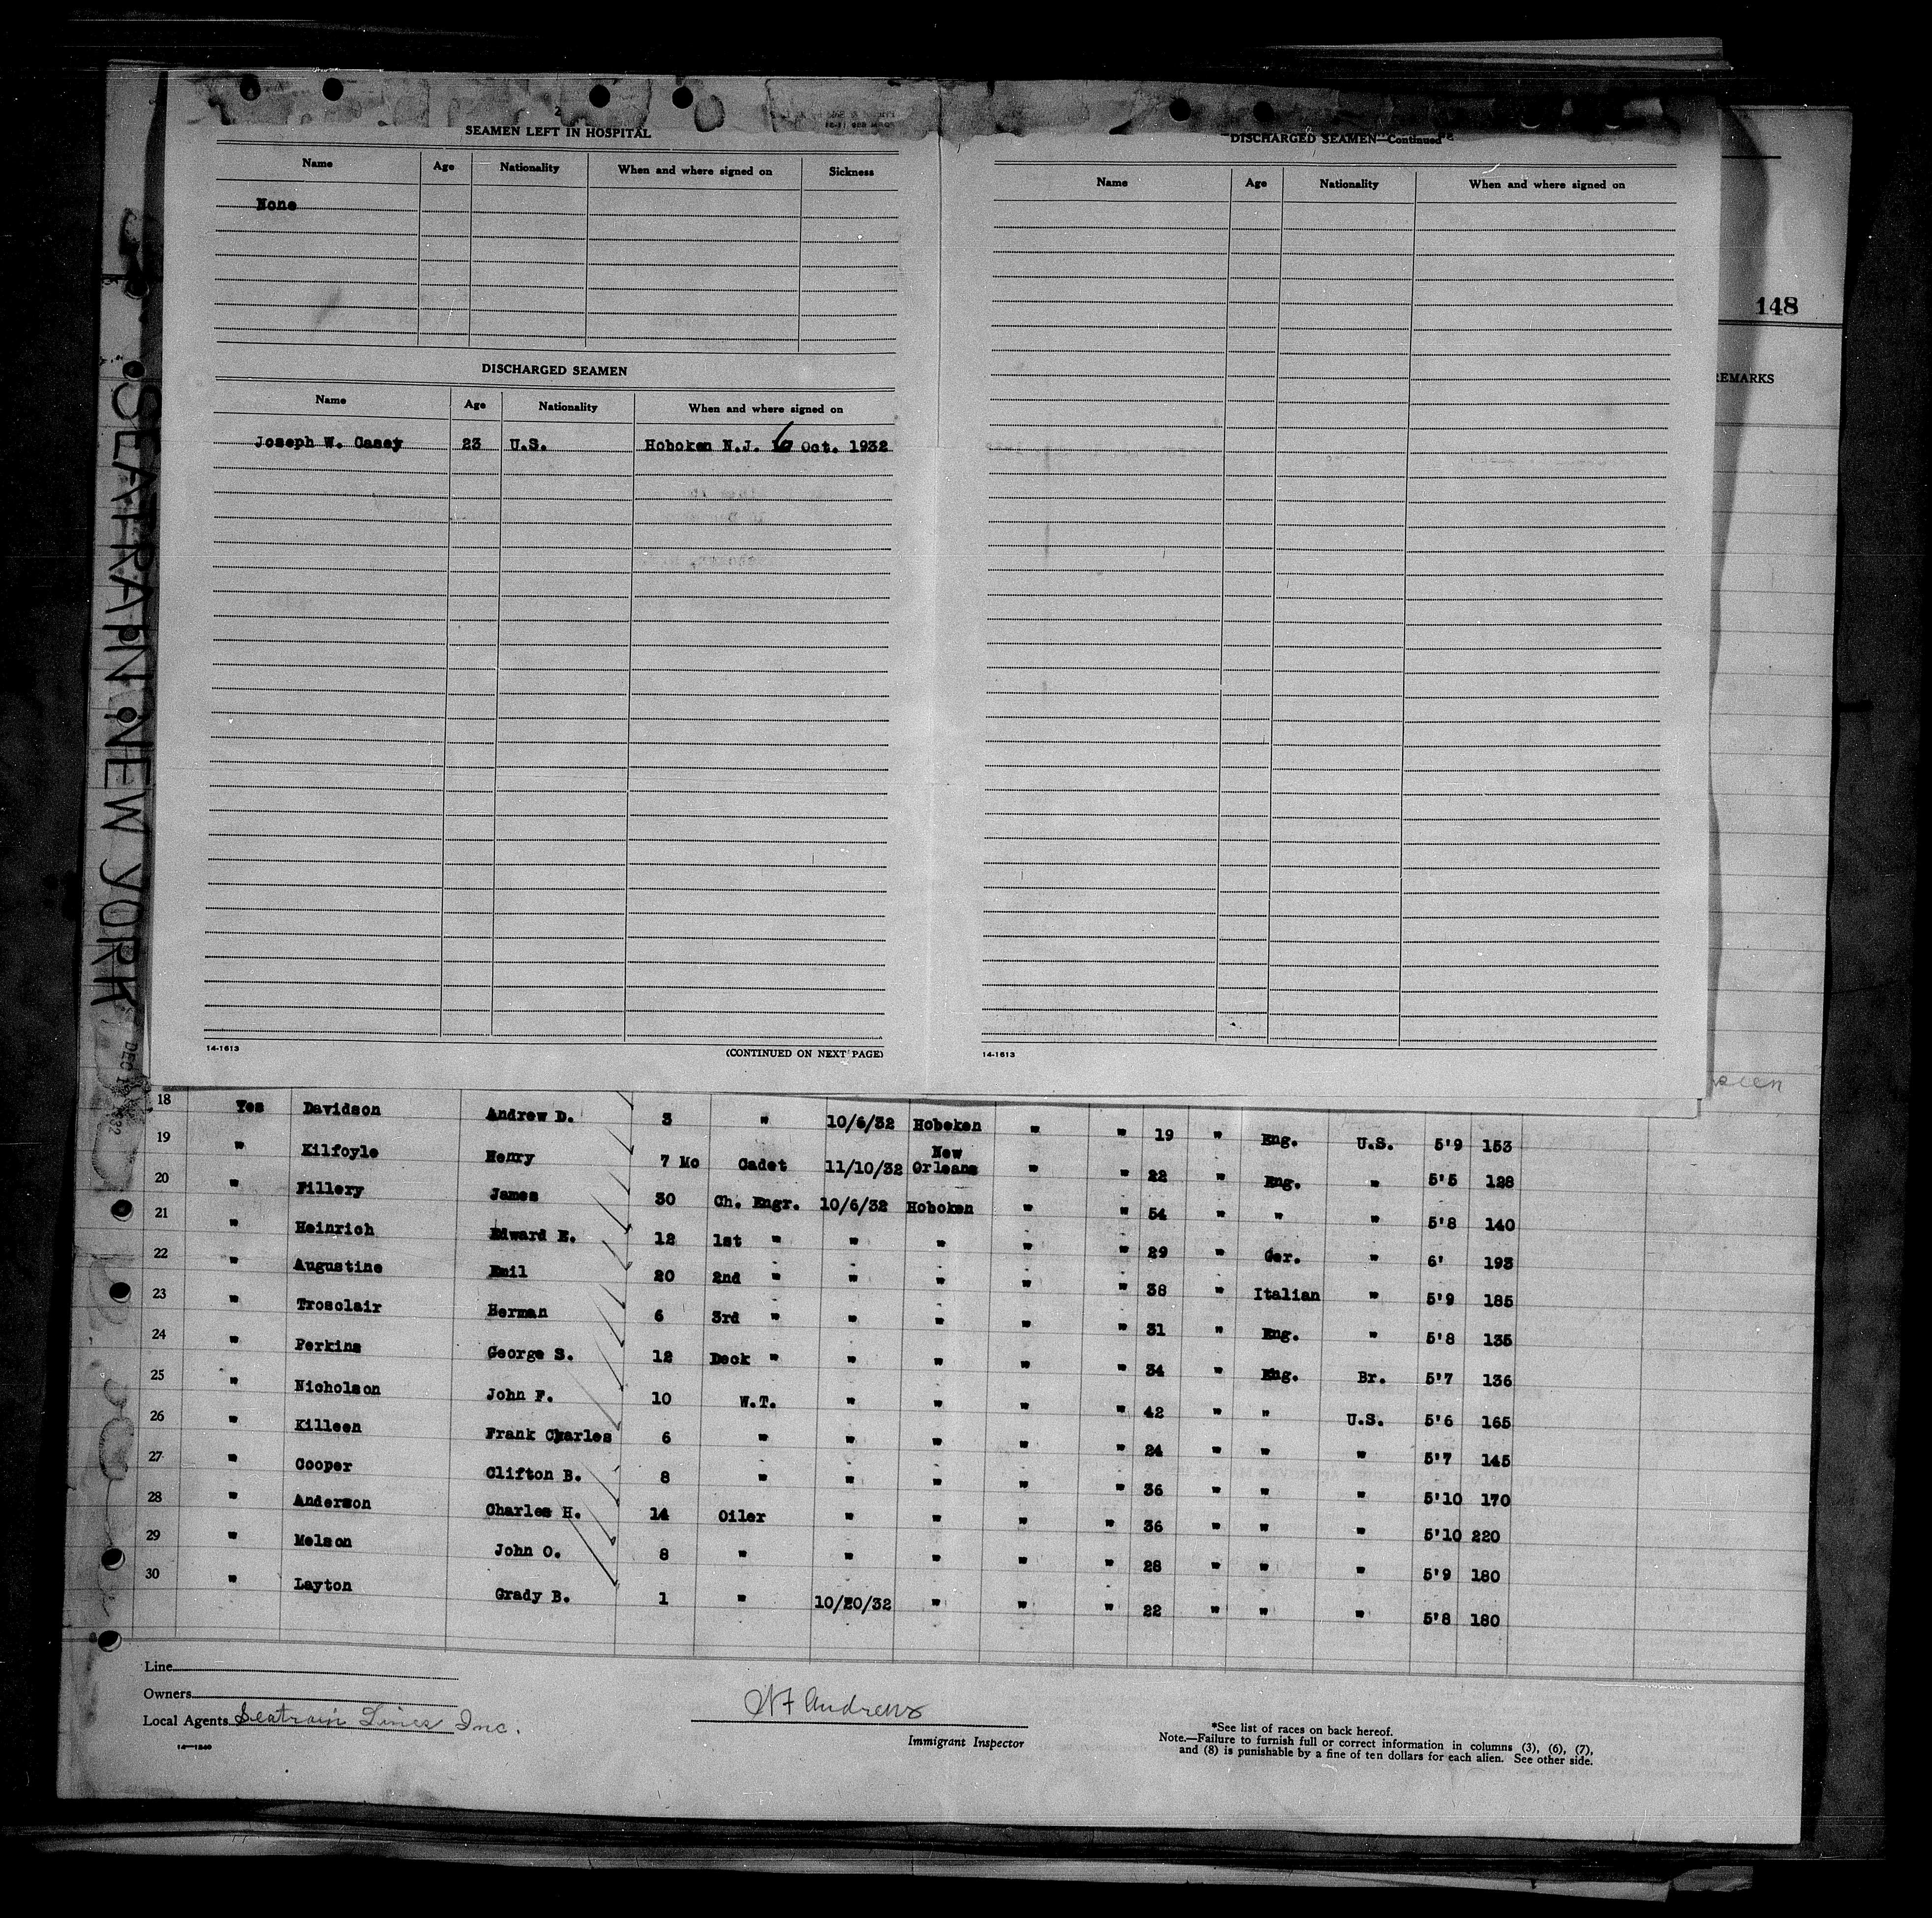 2
SEAMEN LEFT IN HOSPITAL
Name Age Nationality When and where signed on Sickness
None
DISCHARGED SEAMEN
Name Age Nationality When and where signed on
Joseph W. Casey 23 U.S. Hoboken N.J. 6 Oct. 1932
14-1613 (CONTINUED ON NEXT PAGE)
DISCHARGED SEAMEN—Continued
Name Age Nationality When and where signed on
14-1613
148
REMARKS
SEATRAIN NEW YORK
18 Yes Davidson Andrew D. 3 " 10/6/32 Hoboken " " 19 " Eng. U.S. 5'9 153
19 " Kilfoyle Henry 7 Mo Cadet 11/10/32 New Orleans " " 22 " Eng. " 5'5 128
20 " Fillery James 30 Ch. Engr. 10/6/32 Hoboken " " 54 " " " 5'8 140
21 " Heinrich Edward E. 12 1st " " " " " 29 " Ger. " 6' 193
22 " Augustine Emil 20 2nd " " " " " 38 " Italian " 5'9 185
23 " Trosclair Herman 6 3rd " " " " " 31 " Eng. " 5'8 135
24 " Perkins George S. 12 Deck " " " " " 34 " Eng. Br. 5'7 136
25 " Nicholson John F. 10 W.T. " " " " 42 " " U.S. 5'6 165
26 " Killeen Frank Charles 6 " " " " " 24 " " " 5'7 145
27 " Cooper Clifton B. 8 " " " " " 36 " " " 5'10 170
28 " Anderson Charles H. 14 Oiler " " " " 36 " " " 5'10 220
29 " Melson John O. 8 " " " " " 28 " " " 5'9 180
30 " Layton Grady B. 1 " 10/20/32 " " " 22 " " " 5'8 180
Line
Owners
Local Agents Seatrain Lines Inc.
14—1240
W F Andrews
Immigrant Inspector
*See list of races on back hereof.
Note.—Failure to furnish full or correct information in columns (3), (6), (7),
and (8) is punishable by a fine of ten dollars for each alien. See other side.